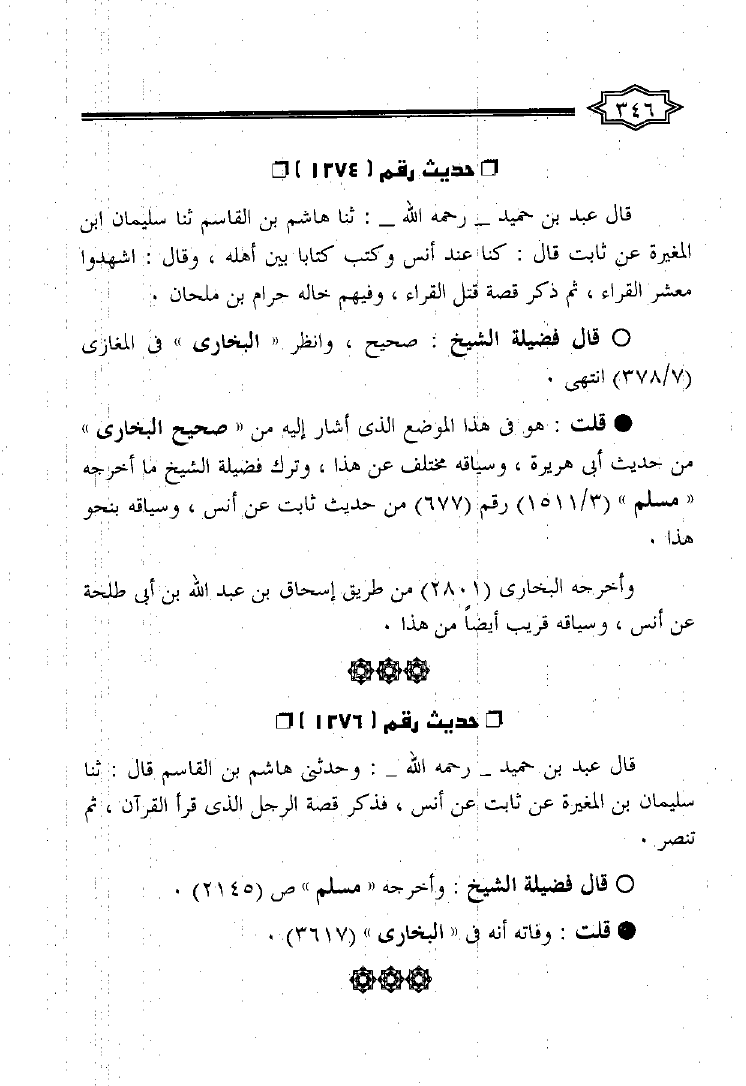 ٣٤٦
❐ حديث رقم ( ١٢٧٤ ) ❐
قال عبد بن حميد _ رحمه الله _ : ثنا هاشم بن القاسم ثنا سليمان ابن
المغيرة عن ثابت قال : كنا عند أنس وكتب كتابا بين أهله ، وقال : اشهدوا
معشر القراء ، ثم ذكر قصة قتل القراء ، وفيهم خاله حرام بن ملحان .
○ قال فضيلة الشيخ : صحيح ، وانظر « البخارى » فى المغازى
(٣٧٨/٧) انتهى .
● قلت : هو فى هذا الموضع الذى أشار إليه من « صحيح البخارى »
من حديث أبى هريرة ، وسياقه مختلف عن هذا ، وترك فضيلة الشيخ ما أخرجه
« مسلم » (١٥١١/٣) رقم (٦٧٧) من حديث ثابت عن أنس ، وسياقه بنحو
هذا .
وأخرجه البخارى (٢٨٠١) من طريق إسحاق بن عبد الله بن أبى طلحة
عن أنس ، وسياقه قريب أيضاً من هذا .
❐ حديث رقم ( ١٢٧٦ ) ❐
قال عبد بن حميد _ رحمه الله _ : وحدثنى هاشم بن القاسم قال : ثنا
سليمان بن المغيرة عن ثابت عن أنس ، فذكر قصة الرجل الذى قرأ القرآن ، ثم
تنصر .
○ قال فضيلة الشيخ : وأخرجه « مسلم » ص (٢١٤٥) .
● قلت : وفاته أنه فى « البخارى » (٣٦١٧) .